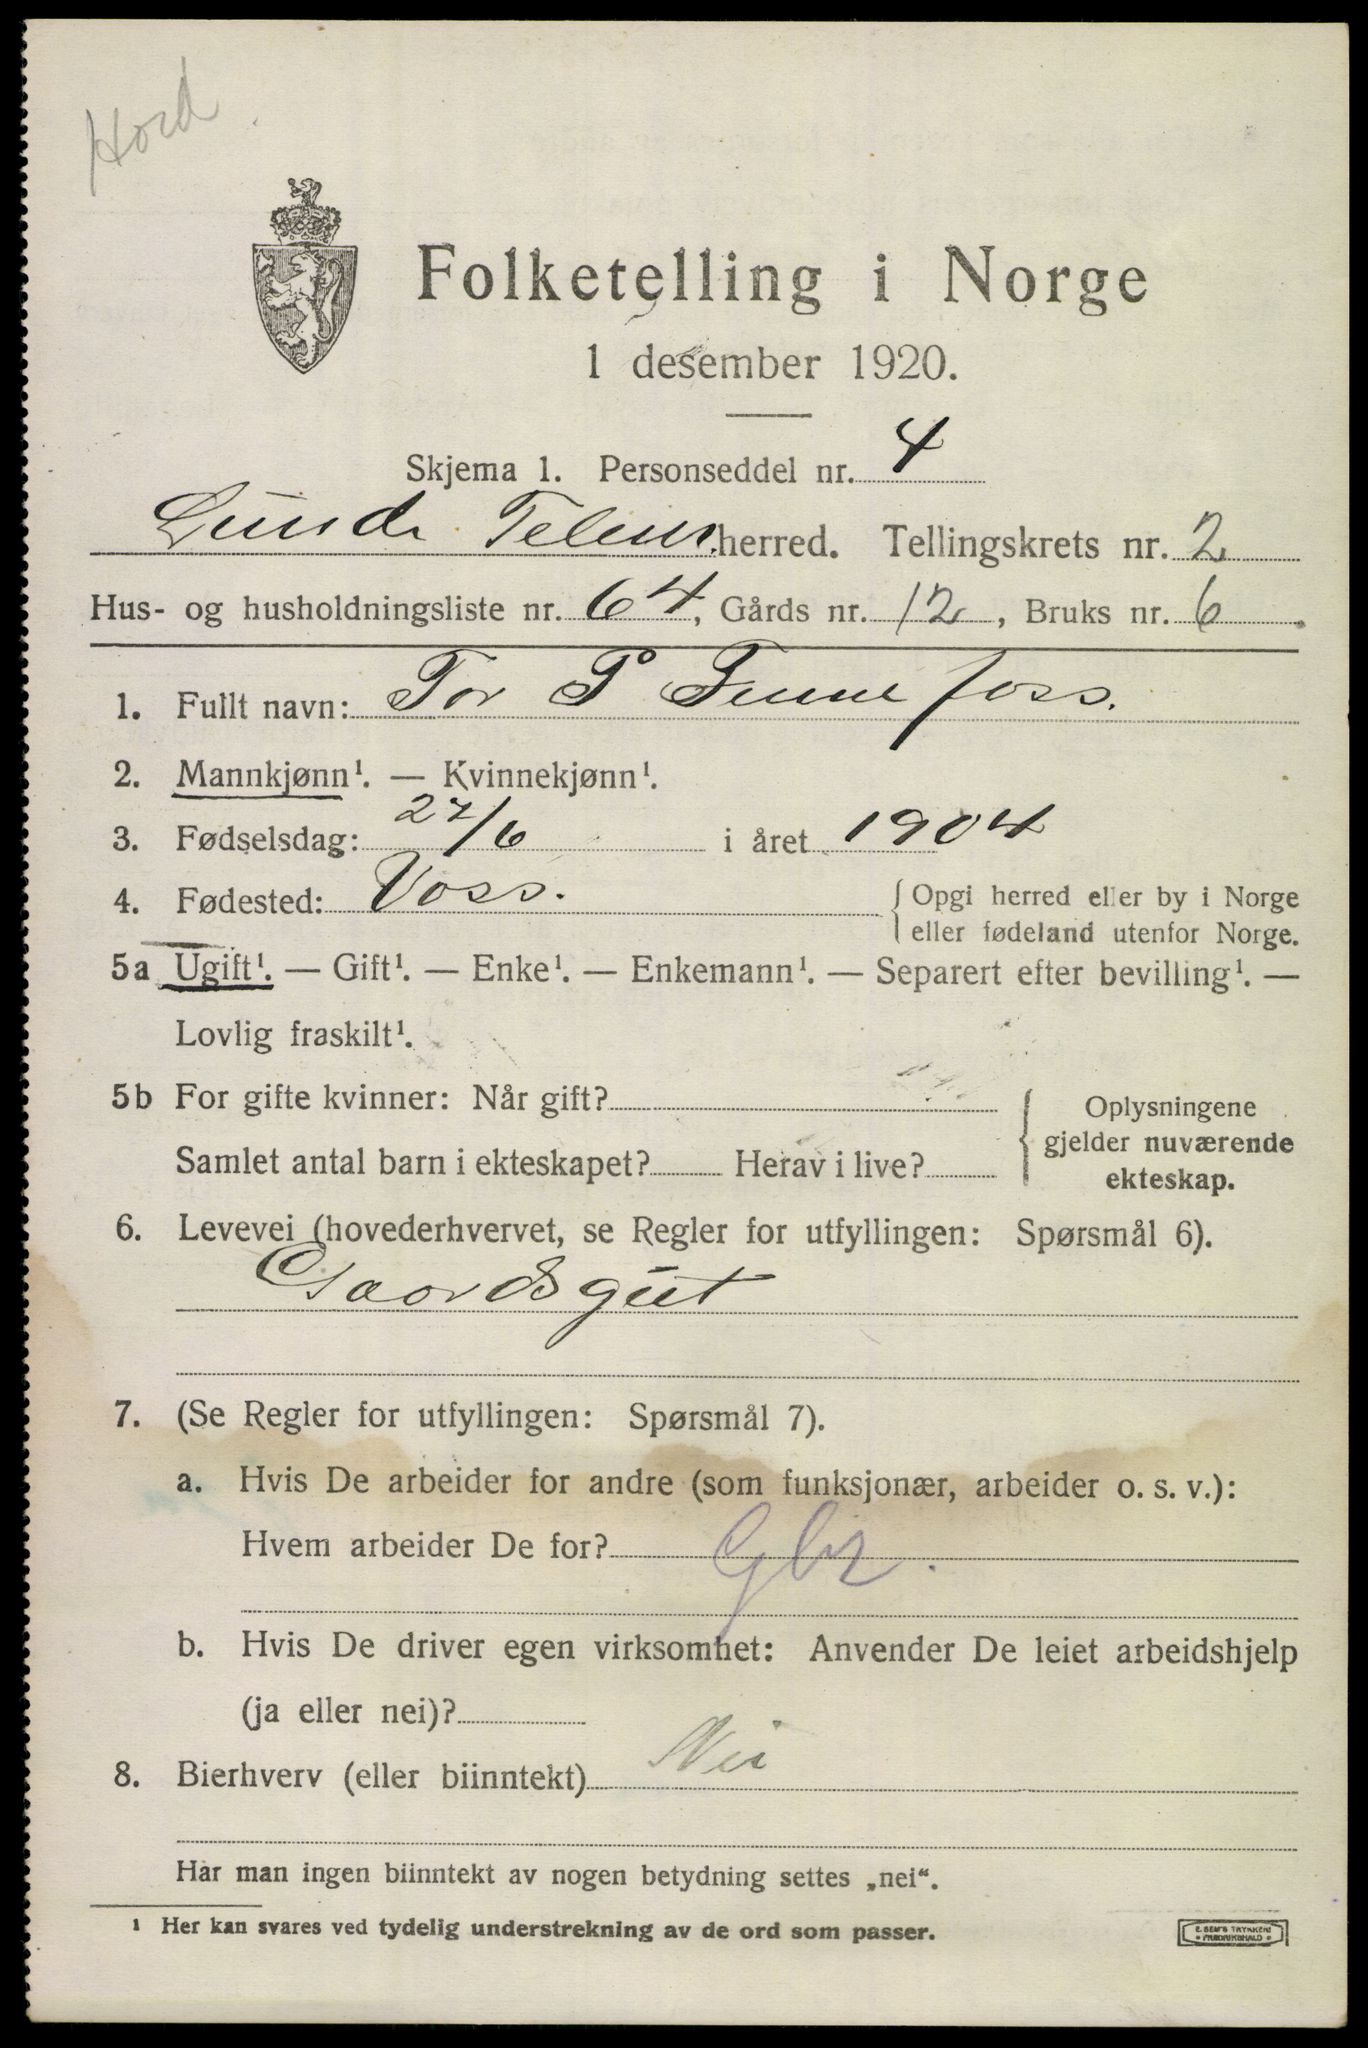 Hord
Folketelling i Norge
1 desember 1920.
Skjema 1. Personseddel nr. 4
Lunde Telem. herred. Tellingskrets nr. 2
Hus- og husholdningsliste nr. 64, Gårds nr. 12, Bruks nr. 6.
1. Fullt navn: Tor P Finnefoss.
2. Mannkjønn¹. — Kvinnekjønn¹.
3. Fødselsdag: 27/6 i året 1904
4. Fødested: Voss. { Opgi herred eller by i Norge
eller fødeland utenfor Norge.
5a Ugift¹. — Gift¹. — Enke¹. — Enkemann¹. — Separert efter bevilling¹. —
Lovlig fraskilt¹.
5b For gifte kvinner: Når gift?
Samlet antal barn i ekteskapet? Herav i live?
Oplysningene
gjelder nuværende
ekteskap.
6. Levevei (hovederhvervet, se Regler for utfyllingen: Spørsmål 6).
Gaardsgut
7. (Se Regler for utfyllingen: Spørsmål 7).
a. Hvis De arbeider for andre (som funksjonær, arbeider o. s. v.):
Hvem arbeider De for? Gbr.
b. Hvis De driver egen virksomhet: Anvender De leiet arbeidshjelp
(ja eller nei)?
8. Bierhverv (eller biinntekt) Nei
Har man ingen biinntekt av nogen betydning settes „nei“.
¹ Her kan svares ved tydelig understrekning av de ord som passer.
E. SEM'S TRYKKERI
• FREDRIKSHALD •